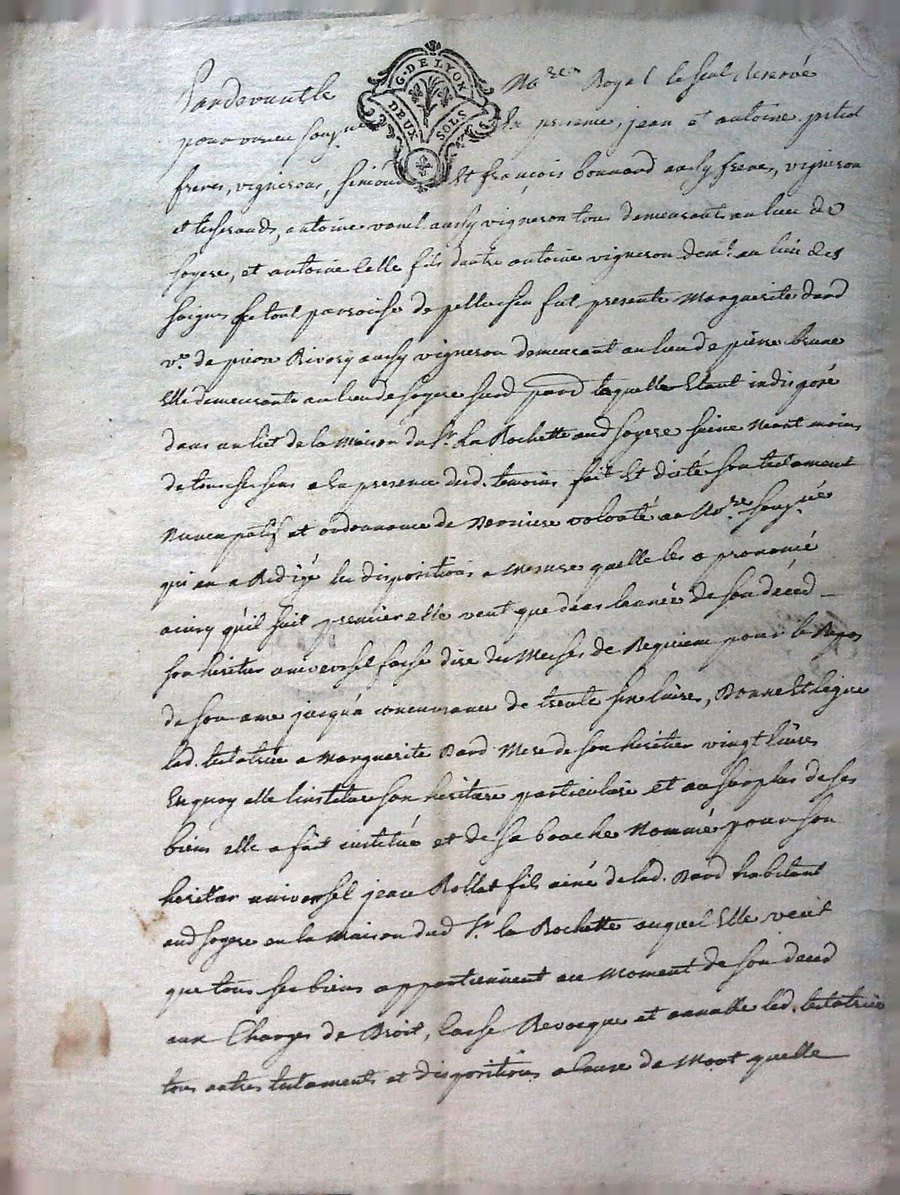 Pardevant le No.re Royal le seul reservé
G. DE LYON
DEUX SOLS
pour soussigné En presence, jean et antoine
freres, vignerons, Et françois bonnard aussy freres, vigneron
et tisserands, antoine vanel aussy vigneron tous demeurants au lieu de
soyere, et antoine Celle fils d'autre antoine vigneron dem.t au lieu des
Saignes le tout parroisse de pellussin fut presente Marguerite dard
v.e de pierre Rivory aussy vigneron demeurant au lieu de pierre brune
Elle demeurante au lieu de soyere laquelle Etant indisposé
dans un lict de la Maison du S.r La Rochette aud Soyere saine Neant moins
de tous ses sens a En presence desd. temoins fait Et dicté son testament
Nuncupatif et ordonnance de derniere volonté au No.re sousg.né
qui en a Redigé les dispositions a Mesure quelle les a prononcé
ainsy qu'il suit premier elle veut que dans lannée de son déced
son heritier universel fasse dire des Messes de Requiem pour le Repos
de son ame jusqu'a concurrance de trente six livres, Donne Et legue
lad. testatrice a Marguerite Dard Mere de son heritier vingt livres
En quoy elle l'institue son heritiere particuliere et au surplus de ses
biens elle a fait institué et de sa bouche Nommé pour son
heritier universel jean Rollat fils ainé de lad. Dard habitant
aud Soyere en la Maison dud S.r la Rochette auquel Elle veut
que tous ses biens appartiennent au Moment de son deced
aux Charges de Droit, Casse Revocque et annulle lad. testatrice
tous autres testaments et dispositions a Cause de Mort quelle